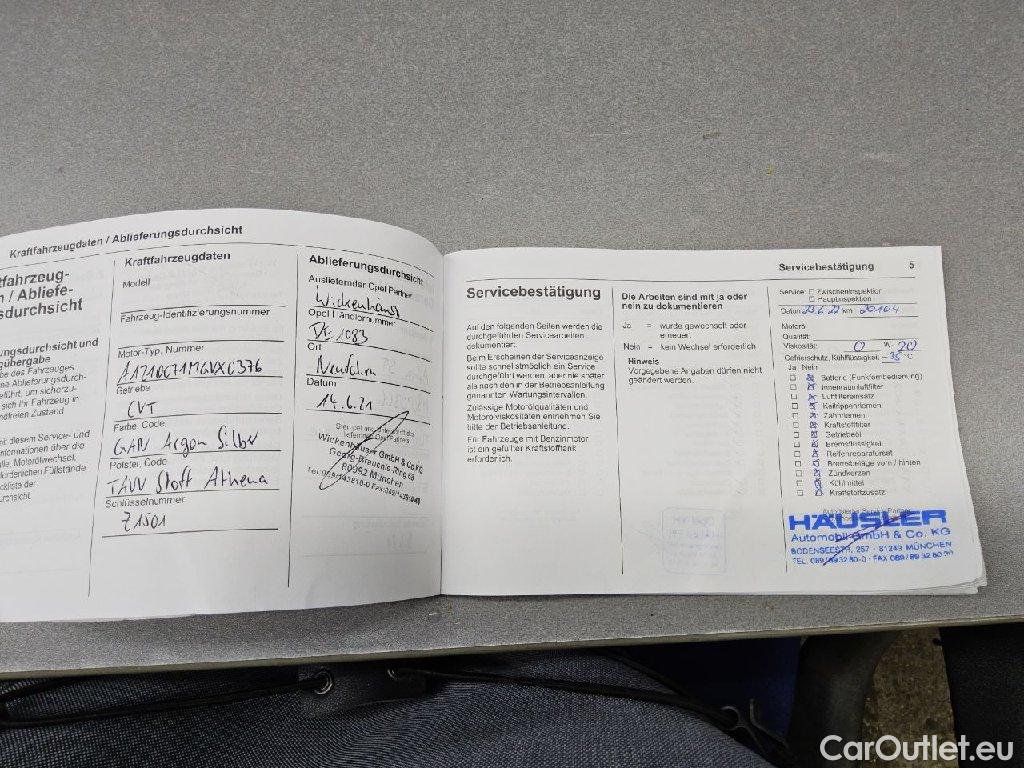 Kraftfahrzeugdaten / Ablieferungsdurchsicht
tfahrzeug-
n / Abliefe-
sdurchsicht
ungsdurchsicht und
gübergabe
be des Fahrzeuges
ne Ablieferungsdurch-
eführt, um sicherzu-
sich Ihr Fahrzeug in
ndfreien Zustand
mit diesem Service- und
nformationen über die
lle, Motorölwechsel,
rforderlichen Füllstände
ckliste der
rchsicht.
Kraftfahrzeugdaten
Modell
Fahrzeug-Identifizierungsnummer
Motor-Typ, Nummer
Getriebe
CVT
Farbe, Code
GAN Argon Silber
Polster, Code
TAVV Stoff Athena
Schlüsselnummer
Z1501
Ablieferungsdurchsicht
Ausliefernder Opel Partner
Wickenhäuser
Opel Händlernummer
1083
Ort
Datum
14.6.21
Stempel und Unterschrift des
liefernden Opel Partners
Wickenhäuser GmbH & Co KG
80992 München
Servicebestätigung
Auf den folgenden Seiten werden die
durchgeführten Servicearbeiten
dokumentiert.
Beim Erscheinen der Serviceanzeige
sollte schnellstmöglich ein Service
durchgeführt werden, aber nie später
als nach den in der Betriebsanleitung
genannten Wartungsintervallen.
Zulässige Motorölqualitäten und
Motorviskositäten entnehmen Sie
bitte der Betriebsanleitung.
Für Fahrzeuge mit Benzinmotor
ist ein gefüllter Kraftstofftank
erforderlich.
Die Arbeiten sind mit ja oder
nein zu dokumentieren
Ja = wurde gewechselt oder
erneuert
Nein = kein Wechsel erforderlich
Hinweis
Vorgegebene Angaben dürfen nicht
geändert werden.
Servicebestätigung 5
Service: Zwischeninspektion
Hauptinspektion
Datum km
Motoröl
Qualität:
Viskosität: 0 W- 20
Gefrierschutz, Kühlflüssigkeit: -35 °C
Ja Nein
Batterie (Funkfernbedienung)
Innenraumluftfilter
Luftfiltereinsatz
Keilrippenriemen
Zahnriemen
Kraftstofffilter
Getriebeöl
Bremsflüssigkeit
Reifenreparaturset
Bremsbeläge vorn / hinten
Zündkerzen
Kühlmittel
Kraftstoffzusatz
HÄUSLER
Automobil GmbH & Co. KG
BODENSEESTR. 267 · 81249 MÜNCHEN
CarOutlet.eu